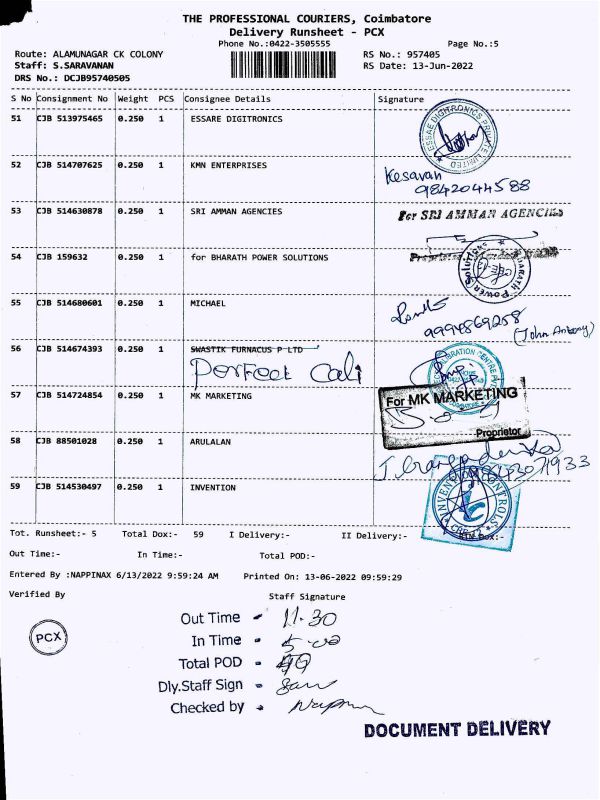 THE PROFESSIONAL COURIERS, Coimbatore
Delivery Runsheet - PCX
Phone No.:0422-3505555 Page No.:5
Route: ALAMUNAGAR CK COLONY RS No.: 957405
Staff: S.SARAVANAN RS Date: 13-Jun-2022
DRS No.: DCJB95740505
S No Consignment No Weight PCS Consignee Details Signature
51 CJB 513975465 0.250 1 ESSARE DIGITRONICS
ESSAE DIGITRONICS PRIVATE LIMITED
52 CJB 514707625 0.250 1 KMN ENTERPRISES
Kesavan
9842044588
53 CJB 514630878 0.250 1 SRI AMMAN AGENCIES For SRI AMMAN AGENCIES
54 CJB 159632 0.250 1 for BHARATH POWER SOLUTIONS
55 CJB 514680601 0.250 1 MICHAEL
(John Antony)
56 CJB 514674393 0.250 1 SWASTIK FURNACUS P LTD
Perfect Cali
57 CJB 514724854 0.250 1 MK MARKETING For MK MARKETING
Proprietor
58 CJB 88501028 0.250 1 ARULALAN
59 CJB 514530497 0.250 1 INVENTION
Tot. Runsheet:- 5 Total Dox:- 59 I Delivery:- II Delivery:-
Out Time:- In Time:- Total POD:-
Entered By :NAPPINAX 6/13/2022 9:59:24 AM Printed On: 13-06-2022 09:59:29
Verified By Staff Signature
PCX
Out Time - 11.30
In Time - 5.00
Total POD -
Dly.Staff Sign -
Checked by -
DOCUMENT DELIVERY